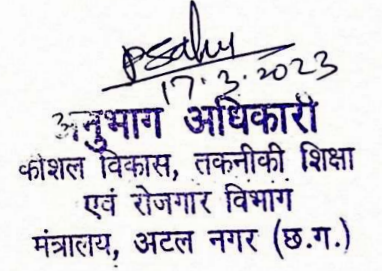 psahu
17.3.2023
अनुभाग अधिकारी
कौशल विकास, तकनीकी शिक्षा
एवं रोजगार विभाग
मंत्रालय, अटल नगर (छ.ग.)